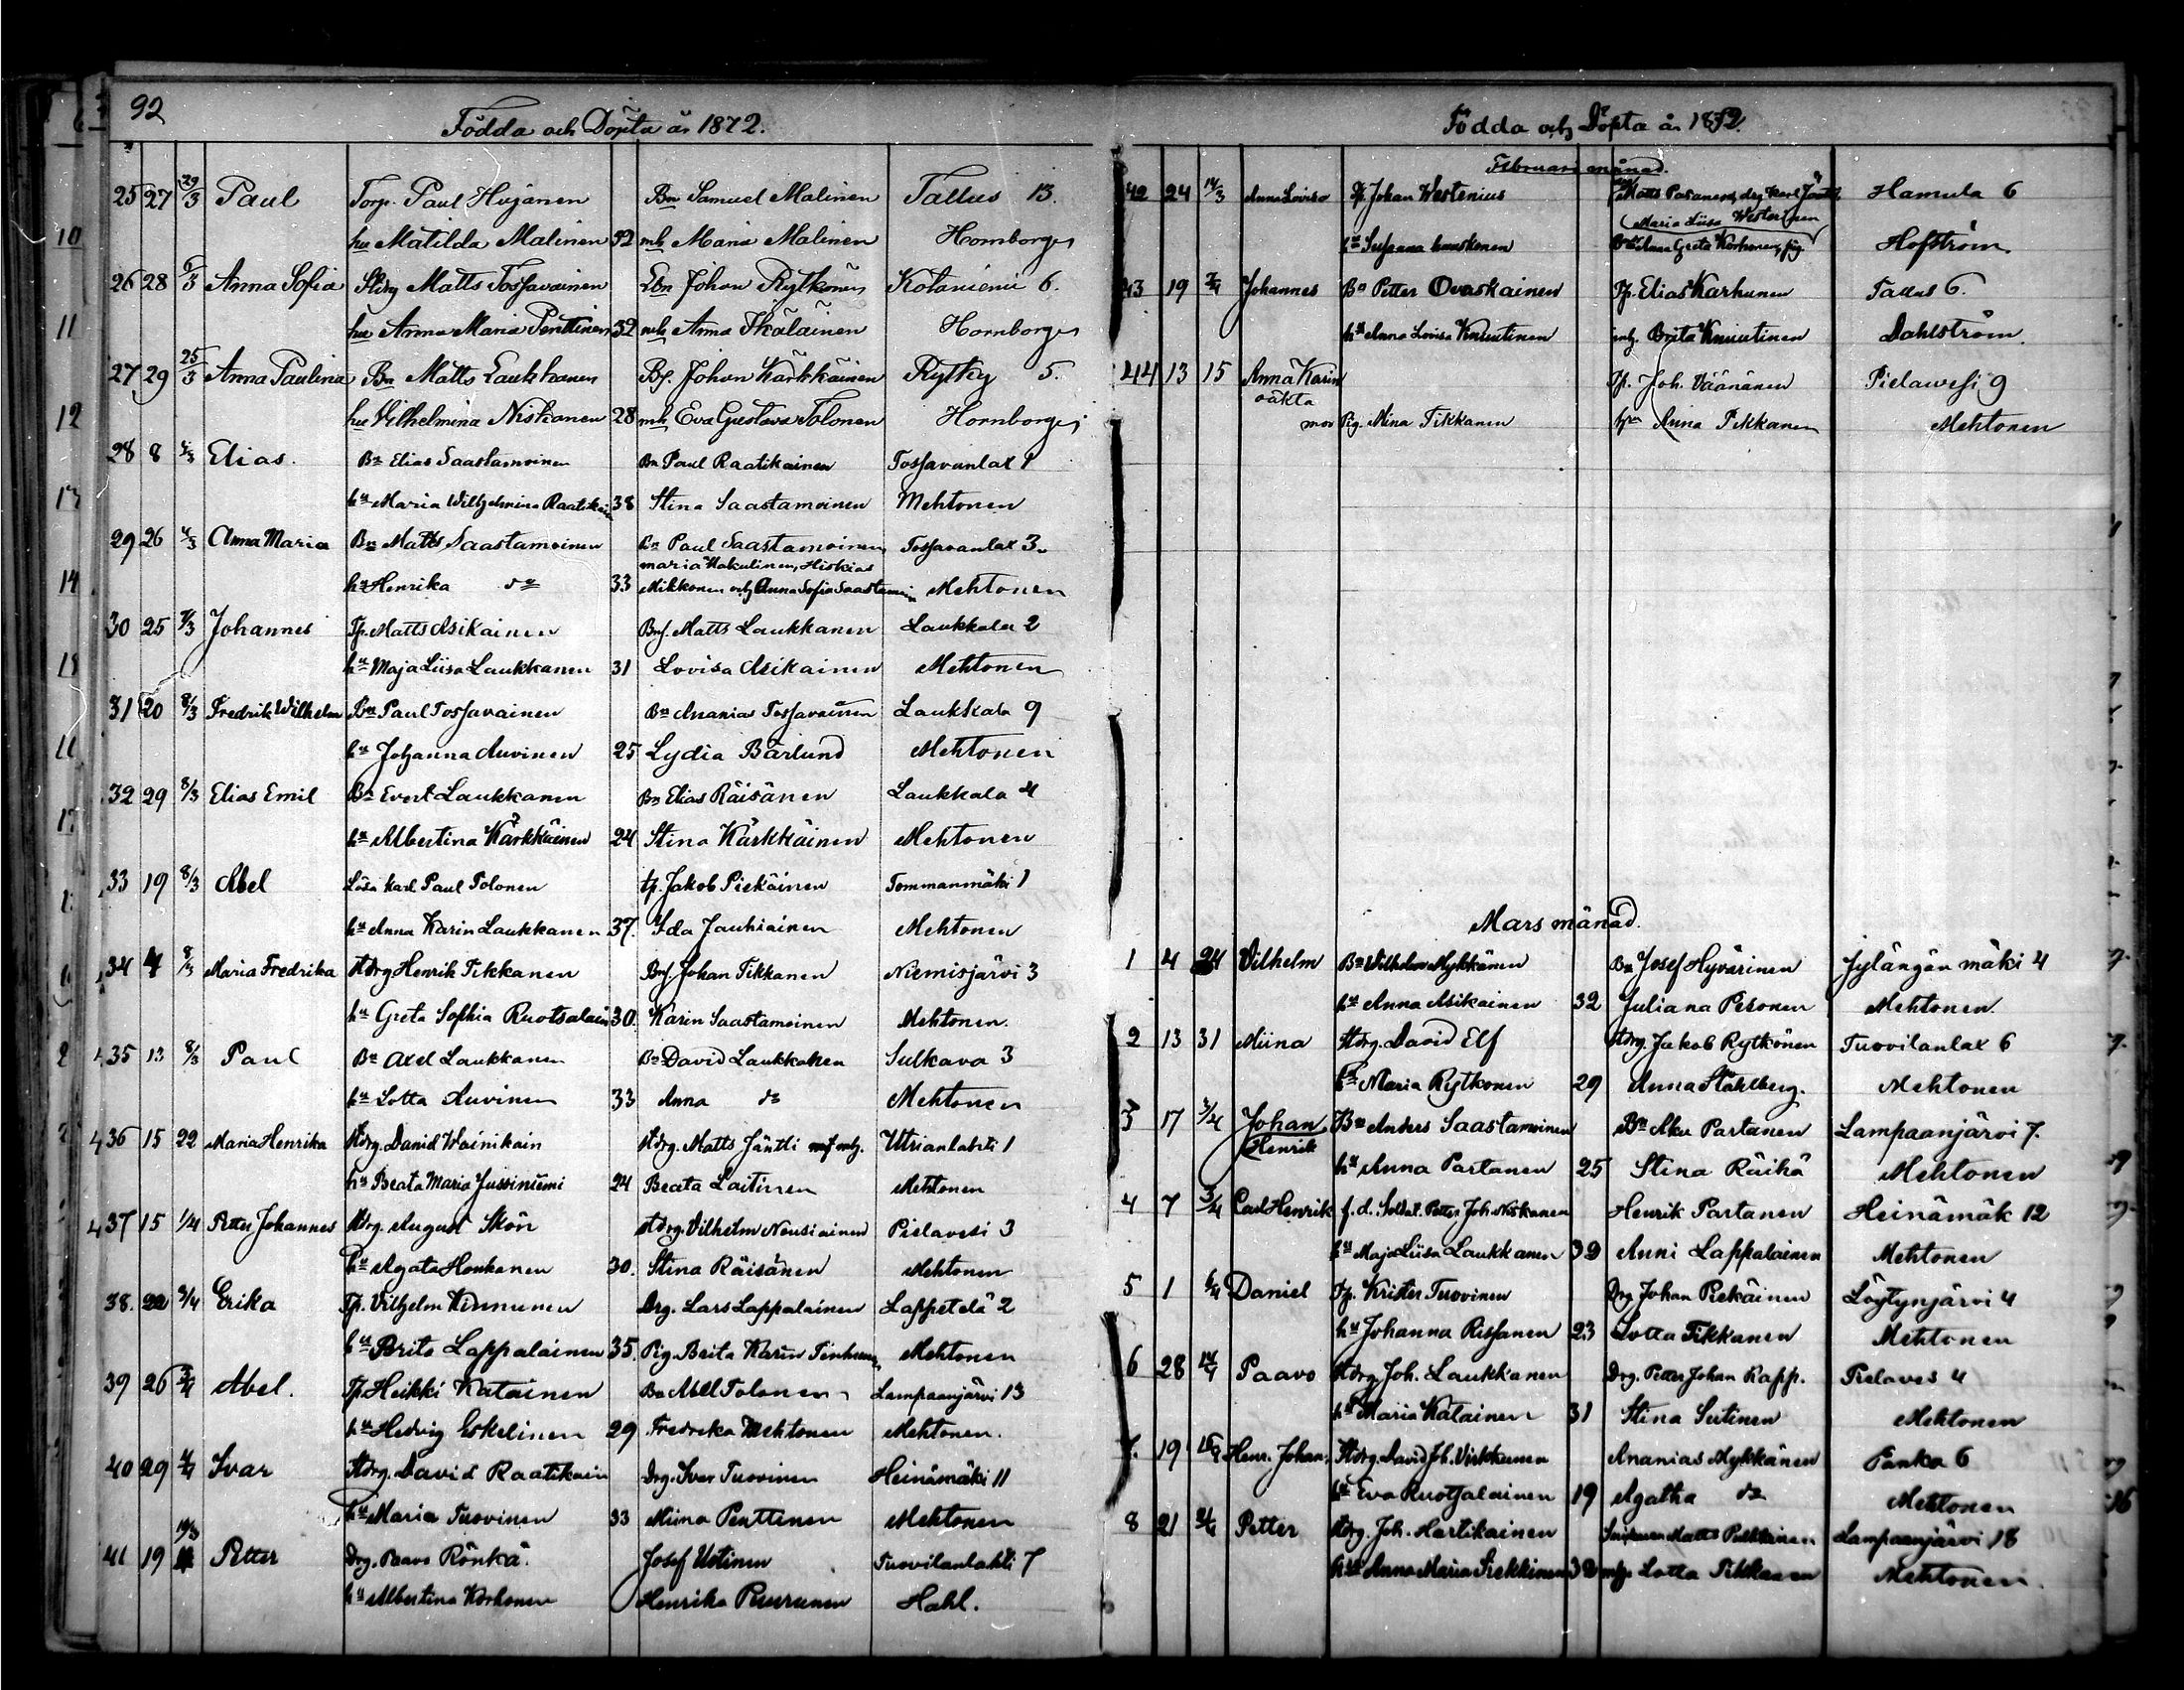 92
Födda och Döpta år 1872.
25 27 29/3 Paul Torp. Paul Hujanen Bn Samuel Malinen Tallus 13.
hu Matilda Malinen 32 mh Maria Malinen Hornborgj
26 28 6/3 Anna Sofia Stdrg Matts Tossavainen Lbn Johan Rytkönen Kotaniemi 6.
hu Anna Maria Penttinen 32 mh Anna Ikäläinen Hornborgj
27 29 25/3 Anna Paulina Bn Matts Laukkanen Bf. Johan Kärkkäinen Rytky 5.
hu Vilhelmina Niskanen 28 mh Eva Gustava Tolonen Hornborgj
28 8 4/3 Elias. Bn Elias Saastamoinen Bn Paul Raatikainen Tossavanlax 1
hu Maria Wilhelmina Raatikain 38 Stina Saastamoinen Mehtonen
29 26 4/3 Anna Maria Bn Matts Saastamoinen Bn Paul Saastamoinen Tossavanlax 3.
maria Kakulinen, Hiskias
hu Henrika do 33 Mikkonen och Anna Sofia Saastamoin Mehtonen
30 25 7/3 Johannes Tp. Matts Asikainen Bnf. Matts Laukkanen Laukkala 2
hu Maja Liisa Laukkanen 31 Lovisa Asikainen Mehtonen
31 20 8/3 Fredrik Wilhelm Bn Paul Tossavainen Bn Ananias Tossavainen Laukkala 9
hu Johanna Auvinen 25 Lydia Bärlund Mehtonen
32 29 8/3 Elias Emil Bn Evert Laukkanen Bn Elias Räisänen Laukkala 4
hu Albertina Kärkkäinen 24 Stina Kärkkäinen Mehtonen
33 19 8/3 Abel Lösa karl Paul Tolonen tp. Jakob Piekäinen Tommanmäki 1
hu Anna Karin Laukkanen 37. Ida Jauhiainen Mehtonen
34 4 8/3 Maria Fredrika Stdrg Henrik Tikkanen Bnf. Johan Tikkanen Niemisjärvi 3
hu Greta Sophia Ruotsalain 30. Karin Saastamoinen Mehtonen.
35 13 8/3 Paul Bn Axel Laukkanen Bn David Laukkanen Sulkava 3
hu Lotta Auvinen 33 Anna do Mehtonen
36 15 22 Maria Henrika Stdrg. David Wainikain Stdrg. Matts Jäntti mh. Utrianlahti 1
hu Beata Maria Jussiniemi 24 Beata Laitinen Mehtonen
37 15 1/4 Petter Johannes Stdrg. August Skön Stdrg. Vilhelm Nousiainen Pielavesi 3
hu Agata Honkanen 30. Stina Räisänen Mehtonen
38. 22 2/4 Erika Tp. Vilhelm Kinnunen Drg. Lars Lappalainen Lappetelä 2
hu Brita Lappalainen 35. Pig. Brita Karin Mehtonen
39 26 2/4 Abel. Tp. Heikki Katainen Bn Abel Tolonen Lampaanjärvi 13
hu Hedvig Eskelinen 29 Fredrika Mehtonen Mehtonen.
40 29 2/4 Ivar Stdrg. David Raatikain Drg. Ivar Tuovinen Heinämäki 11
hu Maria Tuovinen 33 Miina Penttinen Mehtonen
41 19 19/3 Petter Drg. Paavo Rönkä. Josef Ustinen Tuovilanlahti 7
hu Albertina Korhonen Henrika Puurunen Hahl.
Födda och Döpta år 1872.
Februari månad.
42 24 14/3 Anna Lovisa Tp. Johan Westenius Matts Pasanen, drg Karl Jäntti Hamula 6
Maria Liisa Westerinen
hu Susanna Anna Greta Korhonen, pig. Hofström
43 19 2/4 Johannes Bn Petter Ovaskainen Tp. Elias Karhunen Tallus 6.
hu Anna Lovisa Knuutinen mh. Brita Knuutinen Dahlström.
44 13 15 Anna Karin Tp. Joh. Väänänen Pielawesi 9
oäkta
mor Pig. Mina Tikkanen hu Anna Tikkanen Mehtonen
Mars månad.
1 4 24 Vilhelm Bn Wilhelm Mykkänen Bn Josef Hyvärinen Jylängän mäki 4
hu Anna Asikainen 32 Juliana Pesonen Mehtonen.
2 13 31 Miina Stdrg. David Elf Stdrg. Jakob Rytkönen Tuovilanlax 6
hu Maria Rytkonen 29 Anna Ståhlberg. Mehtonen
3 17 3/4 Johan Henrik Bn Anders Saastamoinen Bn Aku Partanen Lampaanjärvi 7.
hu Anna Partanen 25 Stina Räihä Mehtonen
4 7 3/4 Carl Henrik f. d. Soldat. Petter Joh. Niskanen Henrik Partanen Heinämäk 12
hu Maja Liisa Laukkanen 39 Anni Lappalainen Mehtonen
5 1 6/4 Daniel Tp. Krister Tuovinen Drg Johan Piekäinen Löytynjärvi 4
hu Johanna Rissanen 23 Lotta Tikkanen Mehtonen
6 28 14/4 Paavo Stdrg. Joh. Laukkanen Drg. Petter Johan Rapp. Pielaves 4
hu Maria Katainen 31 Stina Sutinen Mehtonen
7. 19 15/4 Henr. Johan Stdrg. David Joh. Virkkunen Ananias Mykkänen Panka 6
hu Eva Ruotsalainen 19 Agatha do Mehtonen
8 21 21/4 Petter Stdrg. Joh. Hartikainen Matts Pulkkinen Lampaanjärvi 18
hu Anna Maria 32 mh. Lotta Tikkanen Mehtonen.